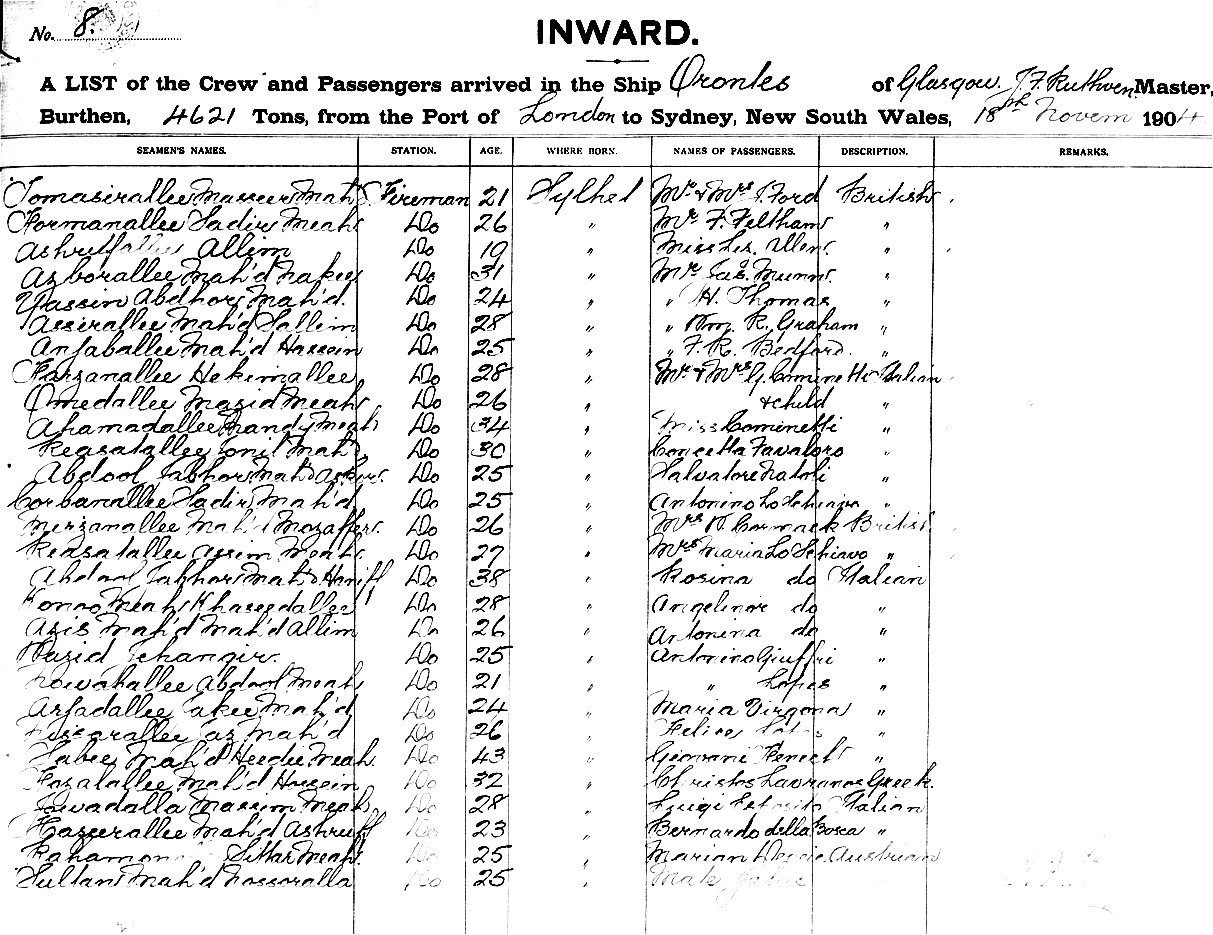 No. 8.
INWARD.
A LIST of the Crew and Passengers arrived in the Ship Orontes of Glasgow. J. F. Ruthven Master,
Burthen, 4621 Tons, from the Port of London to Sydney, New South Wales, 18th Novem 1904
SEAMEN'S NAMES. STATION. AGE. WHERE BORN. NAMES OF PASSENGERS. DESCRIPTION. REMARKS.
Fireman 21 Sylhet Mr & Mrs J. Ford British
Formanallee Sadir Meah Do 26 " Mr F. Feltham "
Allim Do 19 " Miss "
Azborallee Mah'd Do 31 " Mr Jas. Munn "
Yassin Abdhor Mah'd. Do 24 " " H. Thomas "
Assirallee Mah'd Sallim Do 28 " " Wm. R. Graham "
Anfaballee Mah'd Hassein Do 25 " " F. R. Bedford. "
Farzanallee Hekimallee Do 28 " Mr & Mrs G. Cominetti Italian
Omedallee Mazid Meah Do 26 " & child "
Ahamadallee Meah Do 34 " Miss Cominetti "
Reasatallee Mah'd Do 30 " Concetta Favaloro "
Abdool Jabhor Mah'd Do 25 " Salvatore Natoli "
Corbanallee Sadir Mah'd Do 25 " Antonino Lo Schiavo "
Merzanallee Mah'd Mozaffer. Do 26 " Mrs Cormack British
Reasatallee Assim Meah Do 27 " Mrs Maria Lo Schiavo "
Abdool Jabhor Mah'd Haniff Do 38 " Rosina do Italian
Meah Do 28 " do "
Azis Mah'd Mah'd Allim Do 26 " Antonina do "
Wazid Jehangir. Do 25 " Antonino Giuffri "
Abdool Meah Do 21 " " Lopes "
Arfadallee Mah'd Do 24 " Maria Virgona "
Mah'd Do 26 " Felice "
Mah'd Meah Do 43 " Giovani "
Fazalallee Mah'd Hossein Do 32 " Christos Greek.
Jowadalla Massim Meah Do 28 " Luigi Italian
Mah'd Ashruff Do 23 " Bernardo della Bosca "
Meah Do 25 " Marian Austrian
Sultan Mah'd Do 25 "